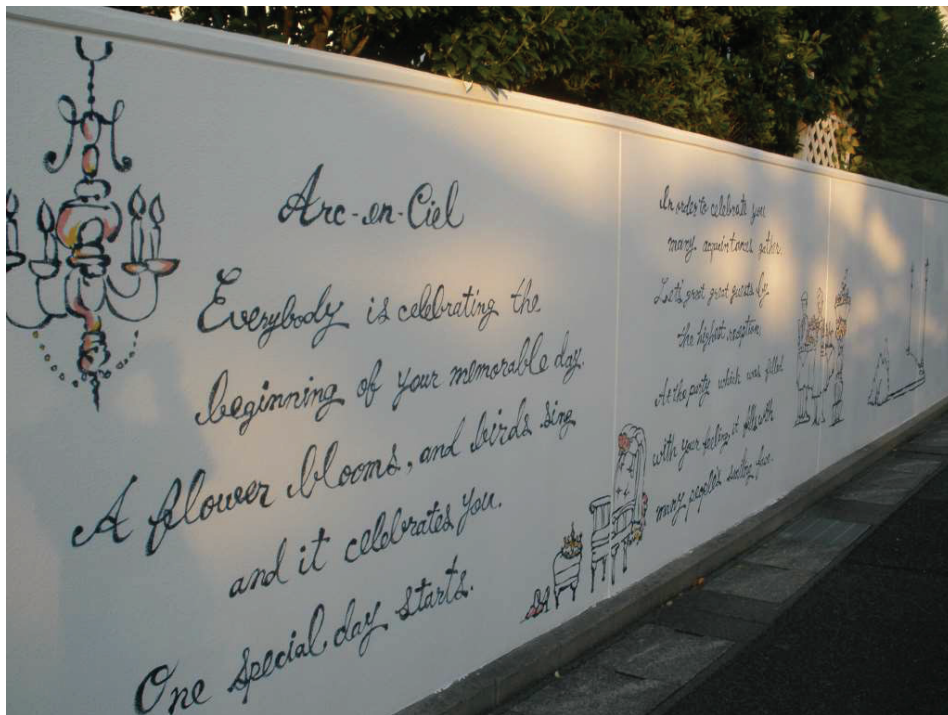 Arc-en-Ciel
Everybody is celebrating the
beginning of your memorable day.
A flower blooms, and birds sing
and it celebrates you.
One special day starts.
In order to celebrate you
many acquaintances gather.
Let's greet great guests by
the highest reception.
At the party which was filled
with your feeling, it fills with
many people's smiling face.